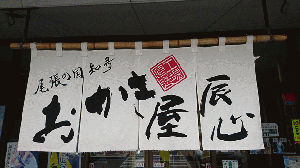 尾張の国 知多
おかき屋
辰心